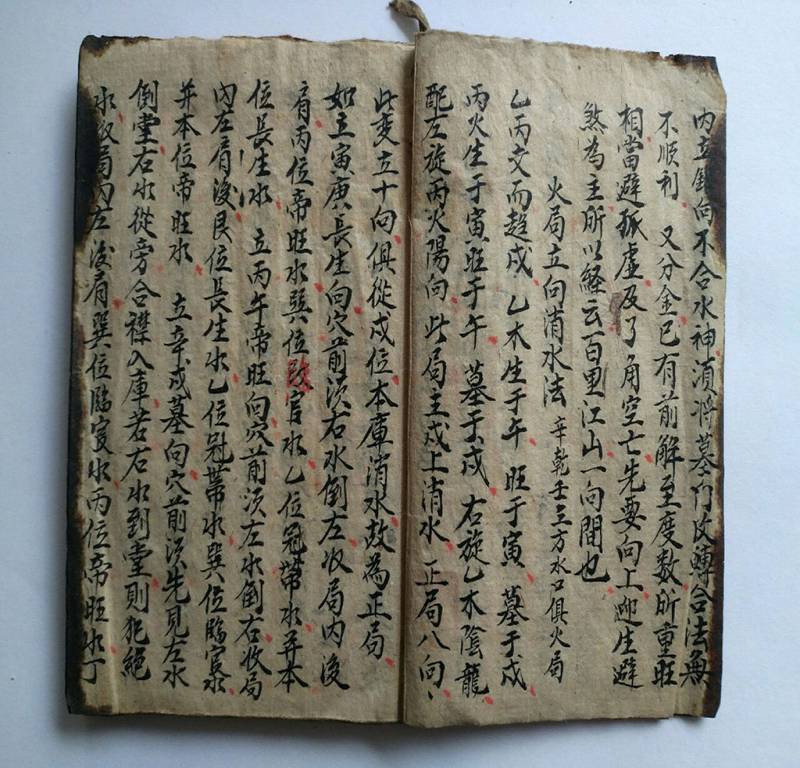 内立錯向不合水神湏將墓门改轉合法無
不順利　又分金已有前解至度数所重旺
相當避孤虛及了角空亡先要向上迎生避
煞為主所以経云百里江山一向間也
火局立向消水法　辛乾壬三方水口俱火局
乙丙交而趍戍　乙木生于午　旺于寅　墓于戍
丙火生于寅旺于午　墓于戍　右旋乙木陰龍
配左旋丙火陽向　此局主戍上消水　正局八向、
此変立十向俱從戍位本庫消水故為正局
如立寅庚長生向穴前湏右水倒左收局内後
肩丙位帝旺水巽位臨官水乙位冠帶水并本
位長生水　立丙午帝旺向穴前湏左水倒右收局
内左肩後艮位長生水乙位冠帶水巽位臨官水
并本位帝旺水　立辛戍墓向穴前湏先見左水
倒堂右水從旁合襟入庫若右水到堂則犯絕
水收局内左後肩巽位臨官水丙位帝旺水丁